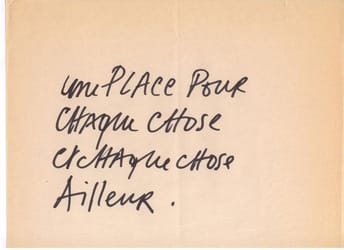 une PLACE POUR
CHAque CHOSE
et CHAque CHOSE
Ailleur.